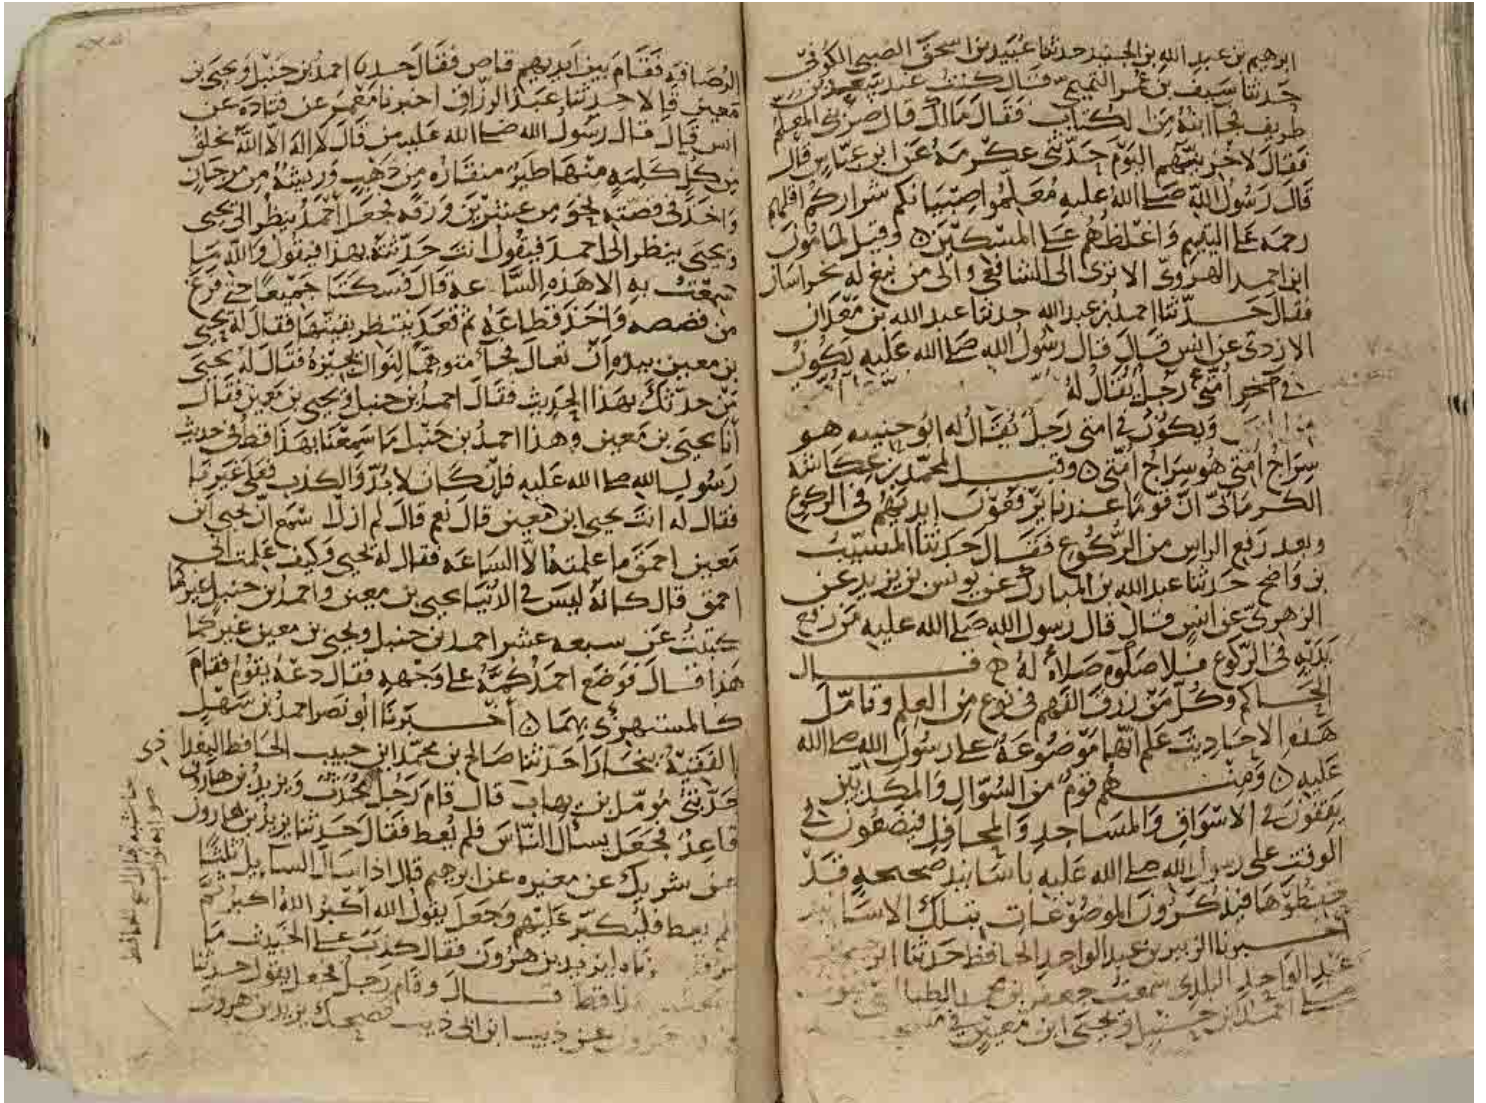 ابرهيم بن عبد الله بن الجنيد حدثنا عبيد بن اسحق الضبي الكوفي
حدثنا سيف بن عمر التميمي قال كنت عند سعيد بن
طريف فجا ابنه من الكتاب فقال مالك قال ضربني المعلم
فقال لاخزينهم اليوم حدثني عكرمه عن ابن عباس قال
قال رسول الله صلى الله عليه معلموا صبيانكم شراركم اقلهم
رحمه على اليتيم واغلظهم على المسكين ٥ وقيل لمامون
ابن احمد الهروي الا ترى الى الشافعي والى من نبغ له بخراسان
فقال حدثنا احمد بن عبد الله حدثنا عبد الله بن معدان
الازدي عن انس قال قال رسول الله صلى الله عليه يكون
في آخر امتي رجل يقال له
ويكون في امتي رجل يقال له ابو حنيفه هو
سراج امتي هو سراج امتي ٥ وقيل لمحمد بن عكاشه
الكرماني ان قوما عندنا يرفعون ايديهم في الركوع
وبعد رفع الراس من الركوع فقال حدثنا المسيب
بن واضح حدثنا عبد الله بن المبارك عن يونس بن يزيد عن
الزهري عن انس قال قال رسول الله صلى الله عليه من رفع
يديه في الركوع فلا صلوه صلاة له ح قال
الحاكم وكل من رزق الفهم في نوع من العلم وتامل
هذه الاحاديث علم انها موضوعة على رسول الله صلى الله
عليه ٥ ومنهم قوم من السوال والمكدين
يقفون في الاسواق والمساجد والمحافل فيضعون في
الوقت على رسول الله صلى الله عليه باسانيد صحيحه قد
حفظوها فيذكرون الموضوعات بتلك الاسانيد
اخبرنا الزبير بن عبد الواحد الحافظ حدثنا ابرهيم بن
عبد الواحد البلدي سمعت جعفر بن محمد الطيالسي يقول
صلى احمد بن حنبل ويحيى ابن معين في
الرصافه فقام بين ايديهم قاص فقال حدثنا احمد بن حنبل ويحيى بن
معين قالا حدثنا عبد الرزاق اخبرنا معمر عن قتاده عن
انس قال قال رسول الله صلى الله عليه من قال لا اله الا الله يخلق
من كل كلمه منها طير منقاره من ذهب وريشه من مرجان
واخذ في قصته نحو من عشرين ورقه فجعل احمد ينظر الى يحيى
ويحيى ينظر الى احمد فيقول انت حدثته بهذا فيقول والله ما
سمعت به الا هذه الساعه قال فسكتا جميعا حتى فرغ
من قصصه واخذ قطاعه ثم قعد ينتظر بقيتها فقال له يحيى
بن معين بيده ان تعال فجا متوهما لنوال يجيزه فقال له يحيى
من حدثك بهذا الحديث فقال احمد بن حنبل ويحيى بن معين فقال
انا يحيى بن معين وهذا احمد بن حنبل ما سمعنا بهذا قط في حديث
رسول الله صلى الله عليه فان كان لا بد والكذب فعلى غيرنا
فقال له انت يحيى ابن معين قال نعم قال لم ازل اسمع ان يحيى ابن
معين احمق ما علمته الا الساعه فقال له يحيى وكيف علمت اني
احمق قال كانه ليس في الدنيا يحيى بن معين واحمد بن حنبل غيركما
كتبت عن سبعه عشر احمد بن حنبل ويحيى بن معين غيركما
هذا قال فوضع احمد كمه على وجهه فقال دعه يقوم فقام
كالمستهزي بهما ٥ اخبرنا ابو نصر احمد بن سهل
الفقيه ببخارا حدثنا صالح بن محمد ابن حبيب الحافظ البغدا
حدثني مومل بن يهاب قال قام رجل يحدث ويزيد بن هارون
قاعد فجعل يسال الناس فلم يعط فقال حدثنا يزيد بن هارون
عن شريك عن مغيره عن ابرهيم قال اذا سال السايل ثلثا
فلم يعط فليكبر عليهم وجعل يقول الله اكبر الله اكبر ثم
يزيد بن هرون فقال كذب على الخبيث ما
قط قال وقام رجل فجعل يقول حدثنا
عن ذيب ابن ابي ذيب فضحك يزيد بن هرون